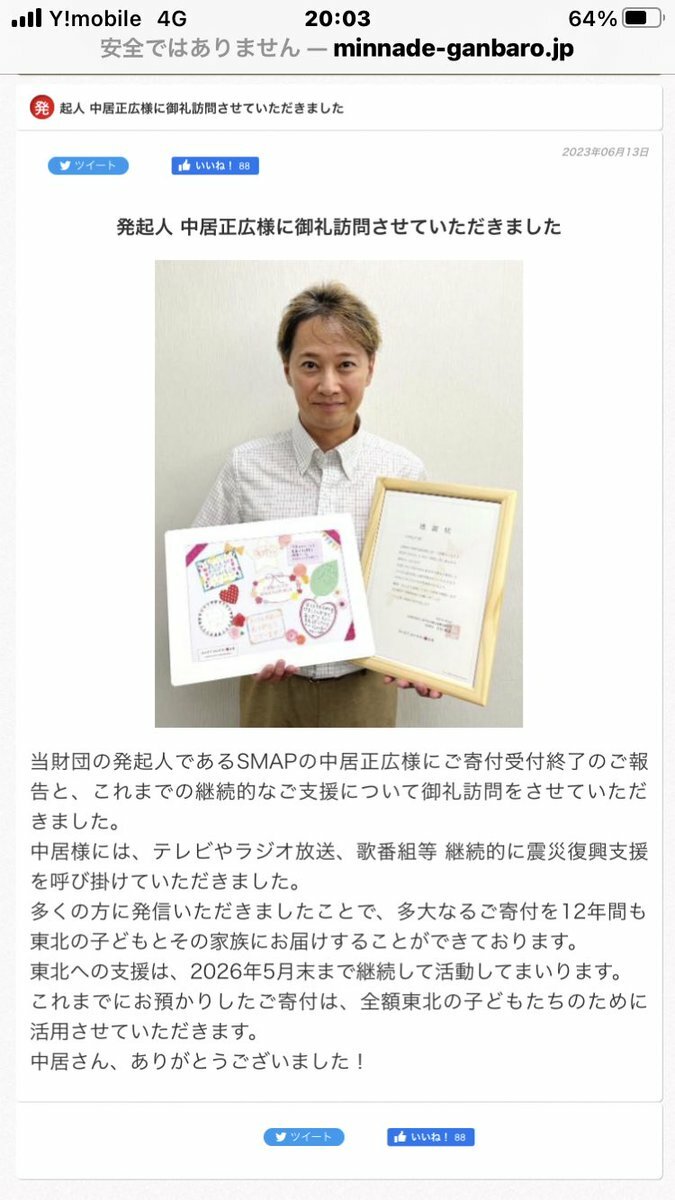 Y!mobile 4G 20:03 64%
安全ではありません — minnade-ganbaro.jp
発 起人 中居正広様に御礼訪問させていただきました
2023年06月13日
ツイート いいね! 88
発起人 中居正広様に御礼訪問させていただきました
感謝状
当財団の発起人であるSMAPの中居正広様にご寄付受付終了のご報
告と、これまでの継続的なご支援について御礼訪問をさせていただ
きました。
中居様には、テレビやラジオ放送、歌番組等 継続的に震災復興支援
を呼び掛けていただきました。
多くの方に発信いただきましたことで、多大なるご寄付を12年間も
東北の子どもとその家族にお届けすることができております。
東北への支援は、2026年5月末まで継続して活動してまいります。
これまでにお預かりしたご寄付は、全額東北の子どもたちのために
活用させていただきます。
中居さん、ありがとうございました!
ツイート いいね! 88